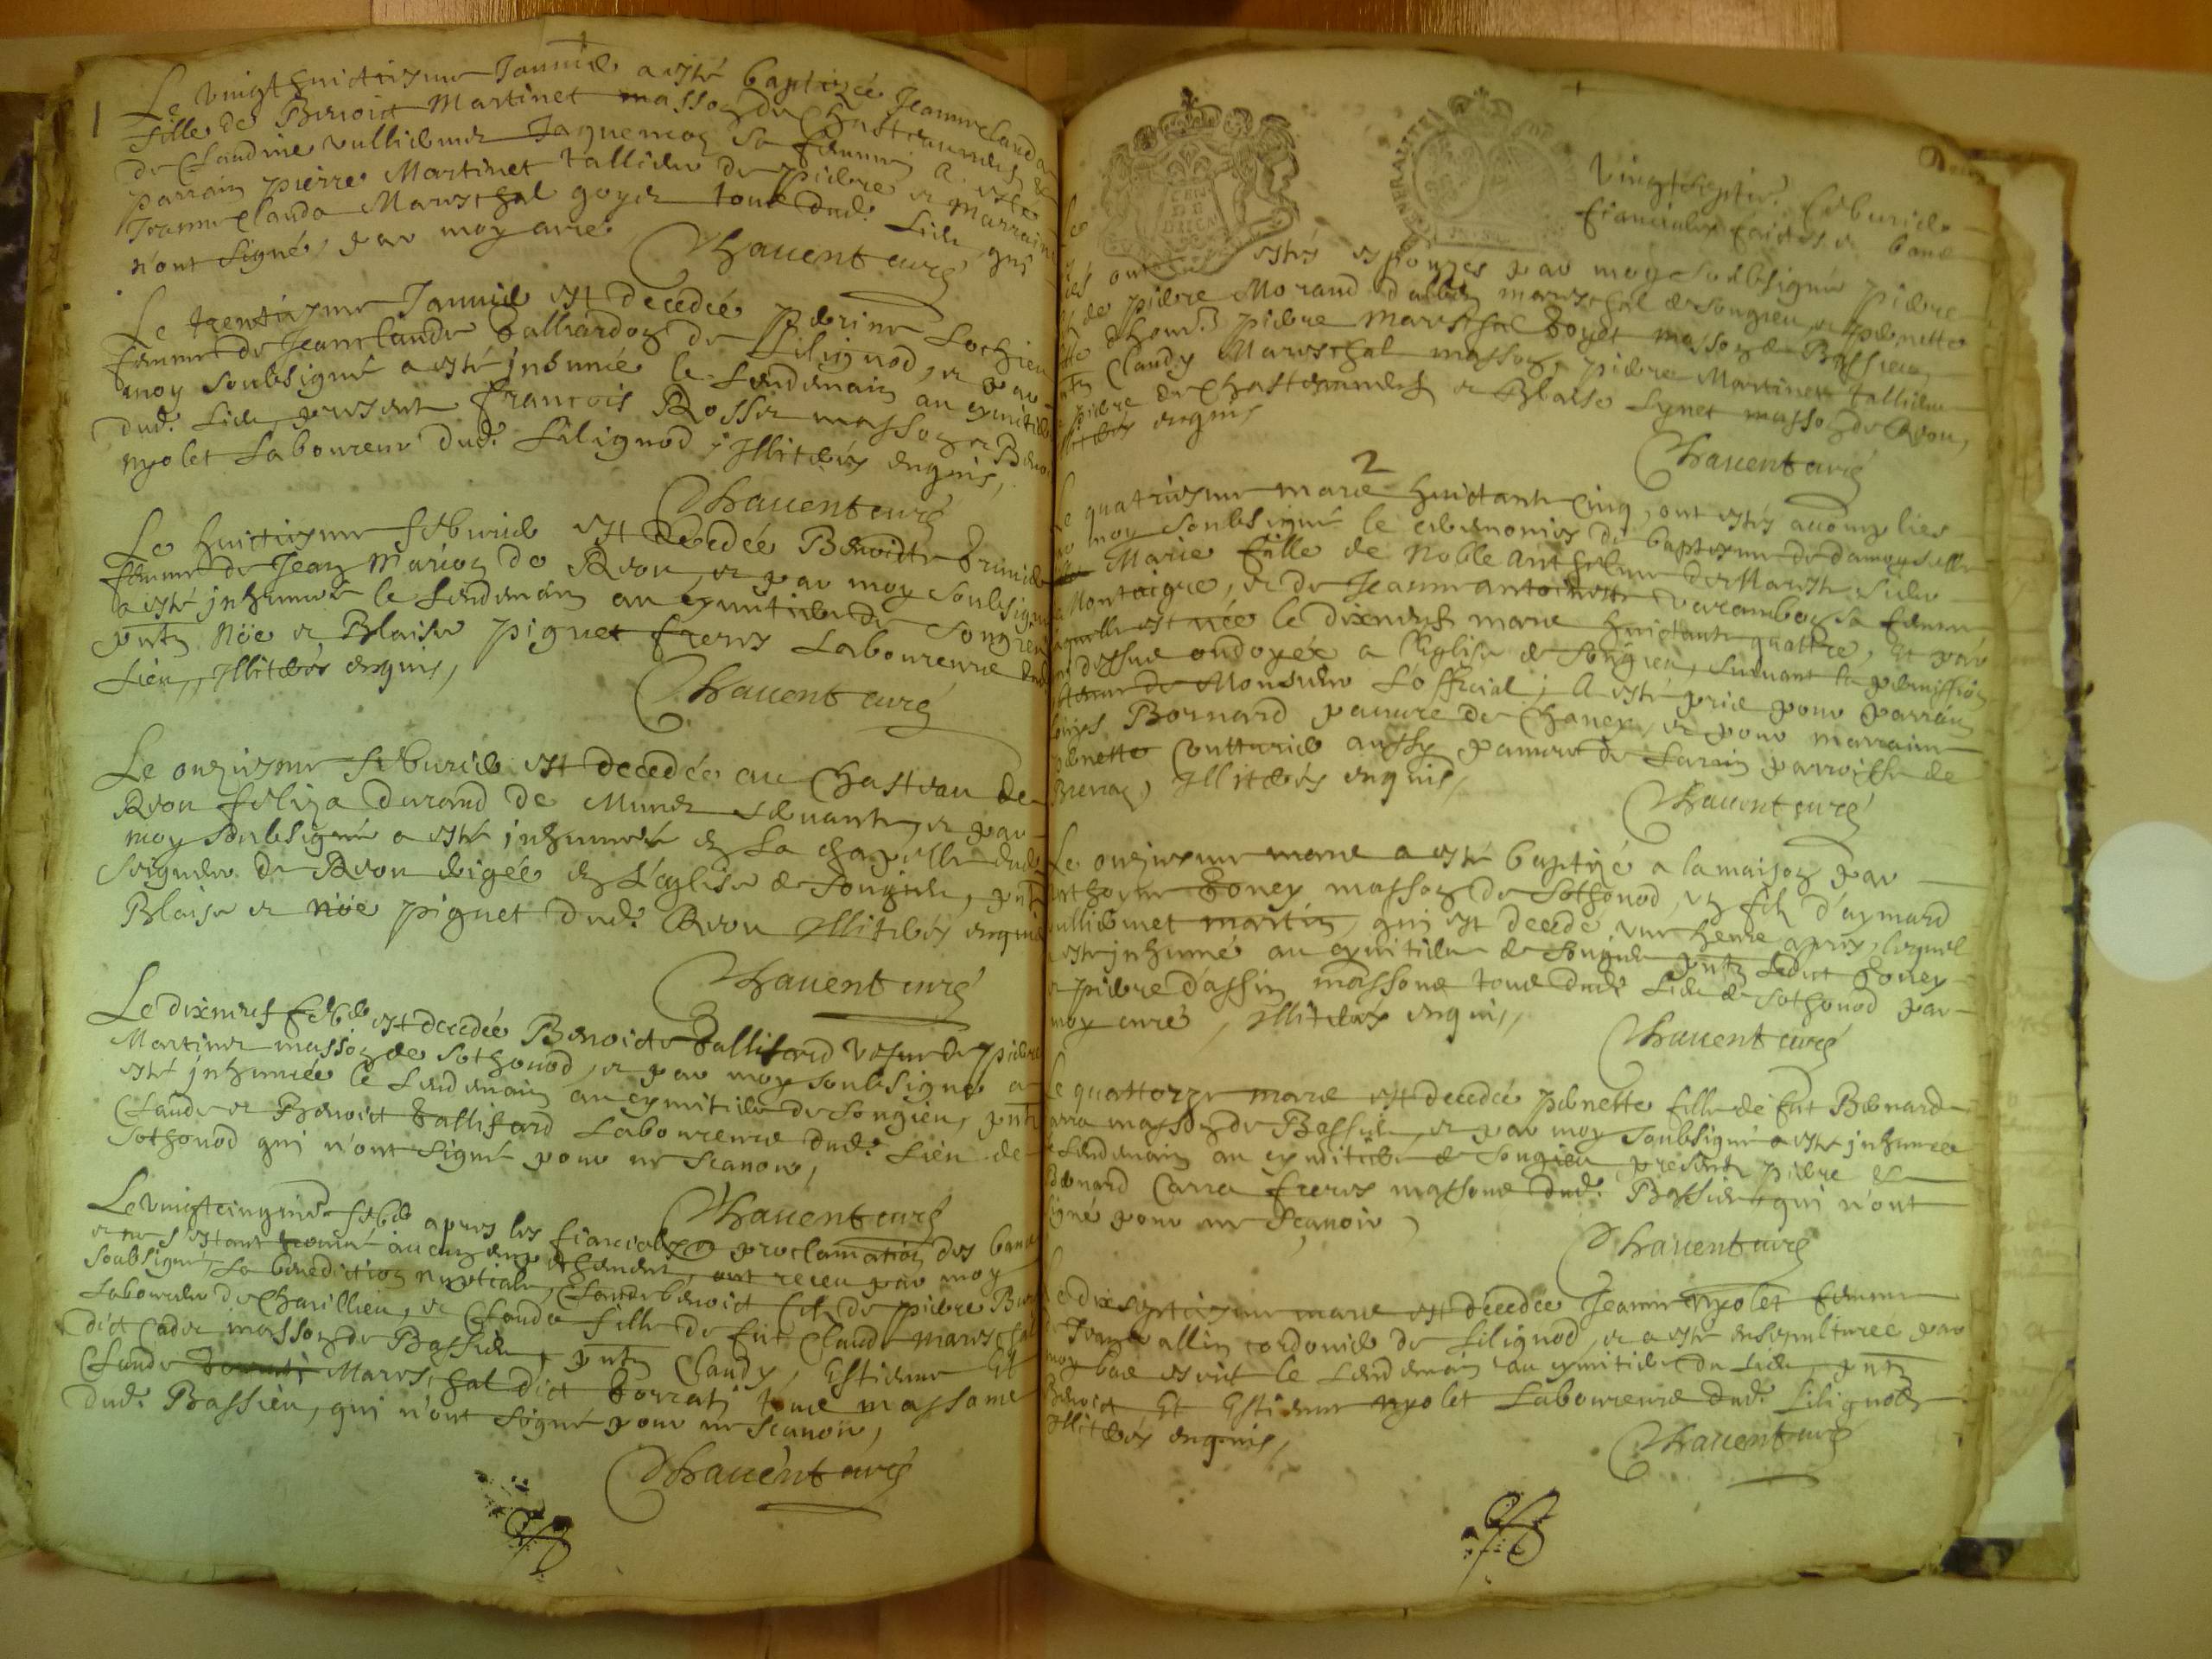 1
Le vingt huictiesme Janvié a esté baptizée Jeanneclauda
fille de Benoict Martinet masson de Chasteauneuf &
de Claudine vulliemer Jaquemoz sa femme, a esté
parrain pierre Martinet tallieur de pierre et marraine
Jeanne clauda Mareschal goyet tous dud. Lieu, qui
n'ont signé, par moy curé
Chauent curé
Le trentiesme Janvié est decedée perine Lochieu
femme de Jeanclaude Balliardoz de Lilignod, et par
moy soubsigné a esté inhumé le Lendemain au cymitiere
dud. Lieu, present francois Rosset masson et Benoi
nyolet Laboureur dud. Lilignod, Illiterés enquis,
Chauent curé
Le huictiesme feburié est decedée Benoidte
femme de Jean Marion de Rvou, et par moy soubsigné
a esté inhumée le Lendemain au cymitiere de Songieu
pntz Nöe et Blaise piguet freres Laboureurs dud
Lieu, Illiterés enquis,
Chauent curé
Le onziesme feburié est decedée au Chasteau de
Rvou feliza durand de Muner servante, et par
moy soubsigné a esté inhumeé en La chapelle dud
seigneur de Rvou erigée en L'eglise de Songieu, pnts
Blaise et nöe piguet dud. Rvou Illiterés enquis
Chauent curé
Le dixneuf feb est decedée Benoicte Ballifard vefue de pierre
Martinet masson de Sothonod, et par moy soubsigné a
esté inhumée le Lendemain au cymitiere de Songieu, pnts
Claude et Benoict Ballifard Laboureurs dud. Lieu de
Sothonod qui n'ont signé pour ne scauoir,
Chauent curé
Le vingtcinq feb apres les fiancialles & proclamation des bans
et ne s'estant trouué aucun empechement, ont receu par moy
soubsigné, La benediction nuptiale, Claude benoict fils de pierre
Laboureur de Charillieu, et Clauda fille de fut Claude mareschal
dict Cadet masson de Bassieu, pntz Claudy, Estienne Et
Claude Mareschal dict Borrati tous massons
dud. Bassieu, qui n'ont signé pour ne scauoir,
Chauent curé
Deux
vingtseptie. feburier
fiancialles faictes & bans
ont estés espouzés par moy soubsigné pierre
de pierre Morand mareschal de songieu, et pernette
pierre Mareschal Goyet masson de Bassieu,
Claudy Mareschal masson, pierre Martinet tallieur
pierre de Chasteauneuf et Blaise Lynet masson de Rvou,
Illiterés enquis
Chauent curé
2
Le quatriesme mars huictante cinq, ont estés accomplies
par moy soubsigné le ceremonies de baptesme de damoyselle
Marie fille de Noble Anthelme de Mareste sieur
Montaigre, et de Jeanne antoinette varambon sa femme,
laquelle est née le dixneuf mars huictante quattre, Et par
moy dessus ondoyée a l'Eglise de Songieu, suiuant la permission
de Monsieur L'official; A esté prié pour parrain
Louys Bornard pauure de Chanex, et pour marraine
pernette Cutturié aussy pauure de Laruin parroisse de
Brenaz, Illiterés enquis,
Chauent curé
Le onziesme mars a esté baptizé a la maison par
Anthoyne Goney masson de Sothonod, un fils d'aymard
vulliermet martin, qui est decedé une heure apres, lequel
a esté inhumé au cymitiere de Songieu pntz Ledict Goney
et pierre d'assin massons tous dud. Lieu de Sothonod par
moy curé, Illiterés enquis,
Chauent curé
Le quattorze mars est decedée pernette fille de fut Bernard
Carra masson de Bassieu, et par moy soubsigné a esté inhumée
le Lendemain au cymitiere de Songieu presents pierre &
Bernard Carra freres massons dud. Bassieu, qui n'ont
signé pour ne scauoir,
Chauent curé
Le dixseptiesme mars est decedée Jeanne nyolet femme
de Jean vallin cordonié de Lilignod, et a esté ensepulturée par
moy bas escrit le Lendemain au cymitiere du Lieu, pntz
Benoict Et Estienne nyolet Laboureurs dud. Lilignod
Illiterés enquis,
Chauent curé